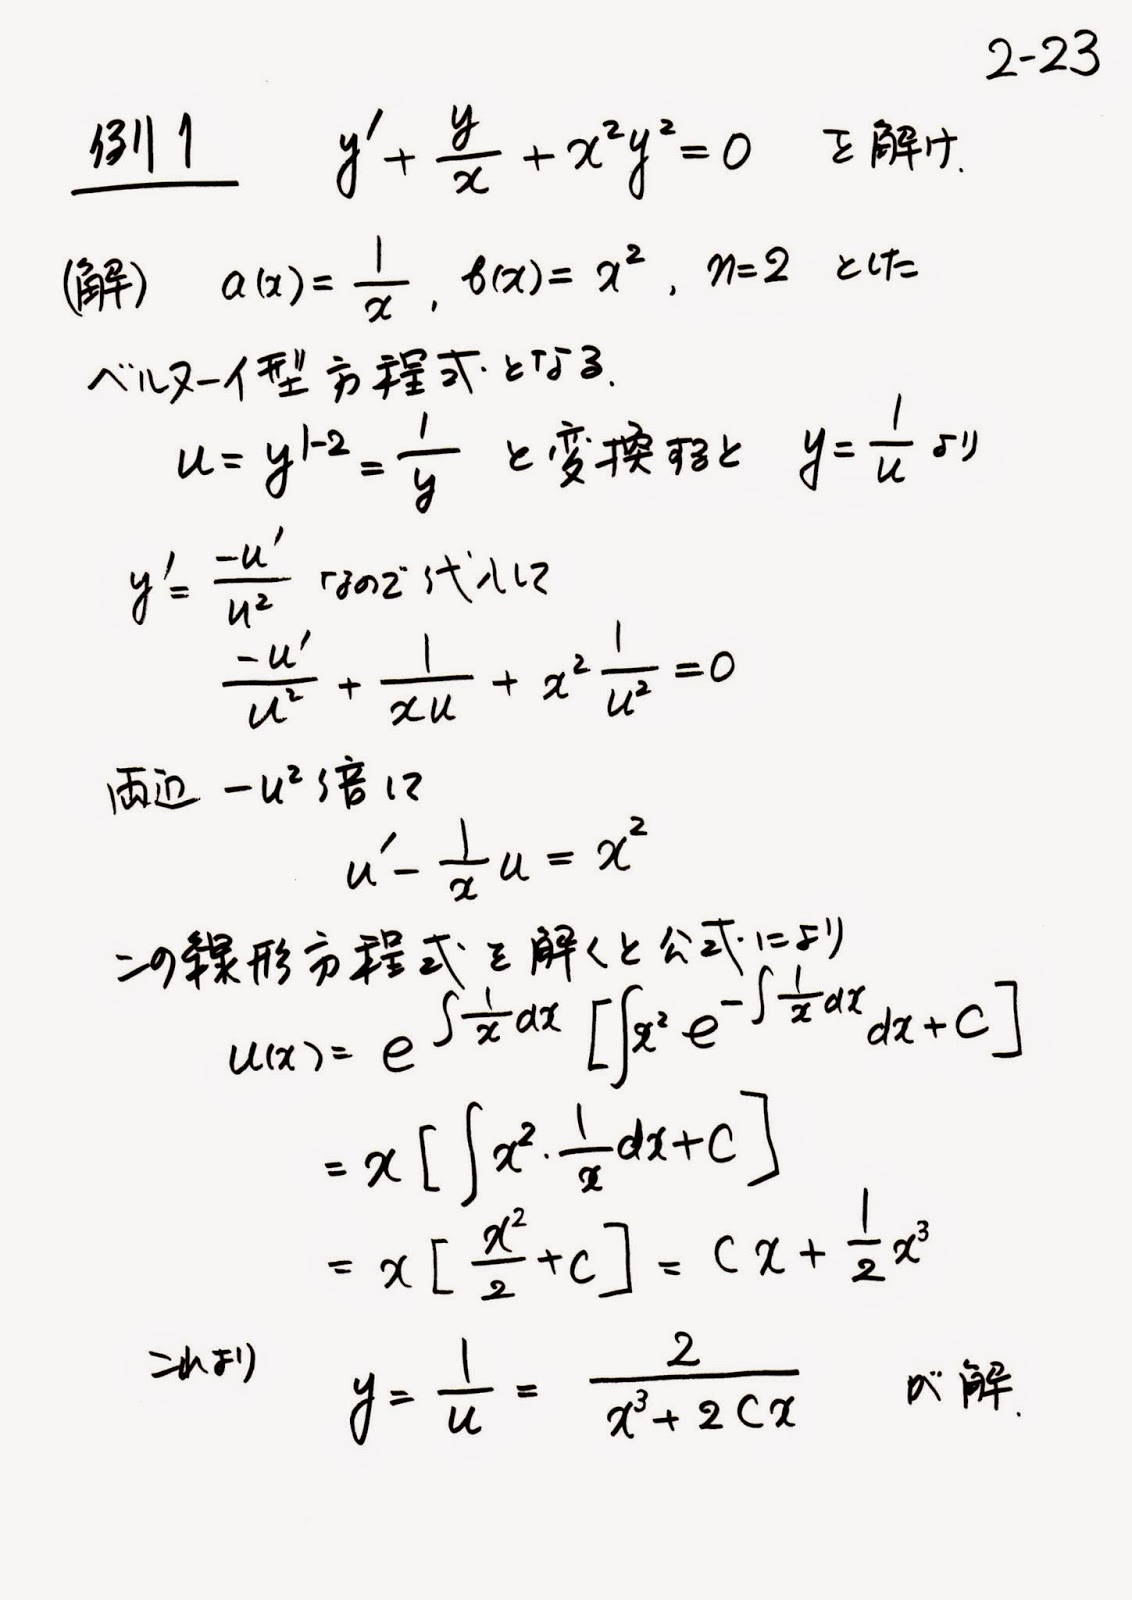 2-23
例1 y' + y/x + x²y² = 0 を解け.
(解) a(x) = 1/x, b(x) = x², n=2 とした
ベルヌーイ型方程式となる.
u = y^{1-2} = 1/y と変換すると y = 1/u より
y' = -u'/u² なので代入して
-u'/u² + 1/(xu) + x² 1/u² = 0
両辺 -u² 倍して
u' - 1/x u = x²
この線形方程式を解くと公式により
u(x) = e^{∫1/x dx} [∫x² e^{-∫1/x dx} dx + C]
= x [∫x²・1/x dx + C]
= x [x²/2 + C] = Cx + 1/2 x³
これより y = 1/u = 2/(x³ + 2Cx) が解.